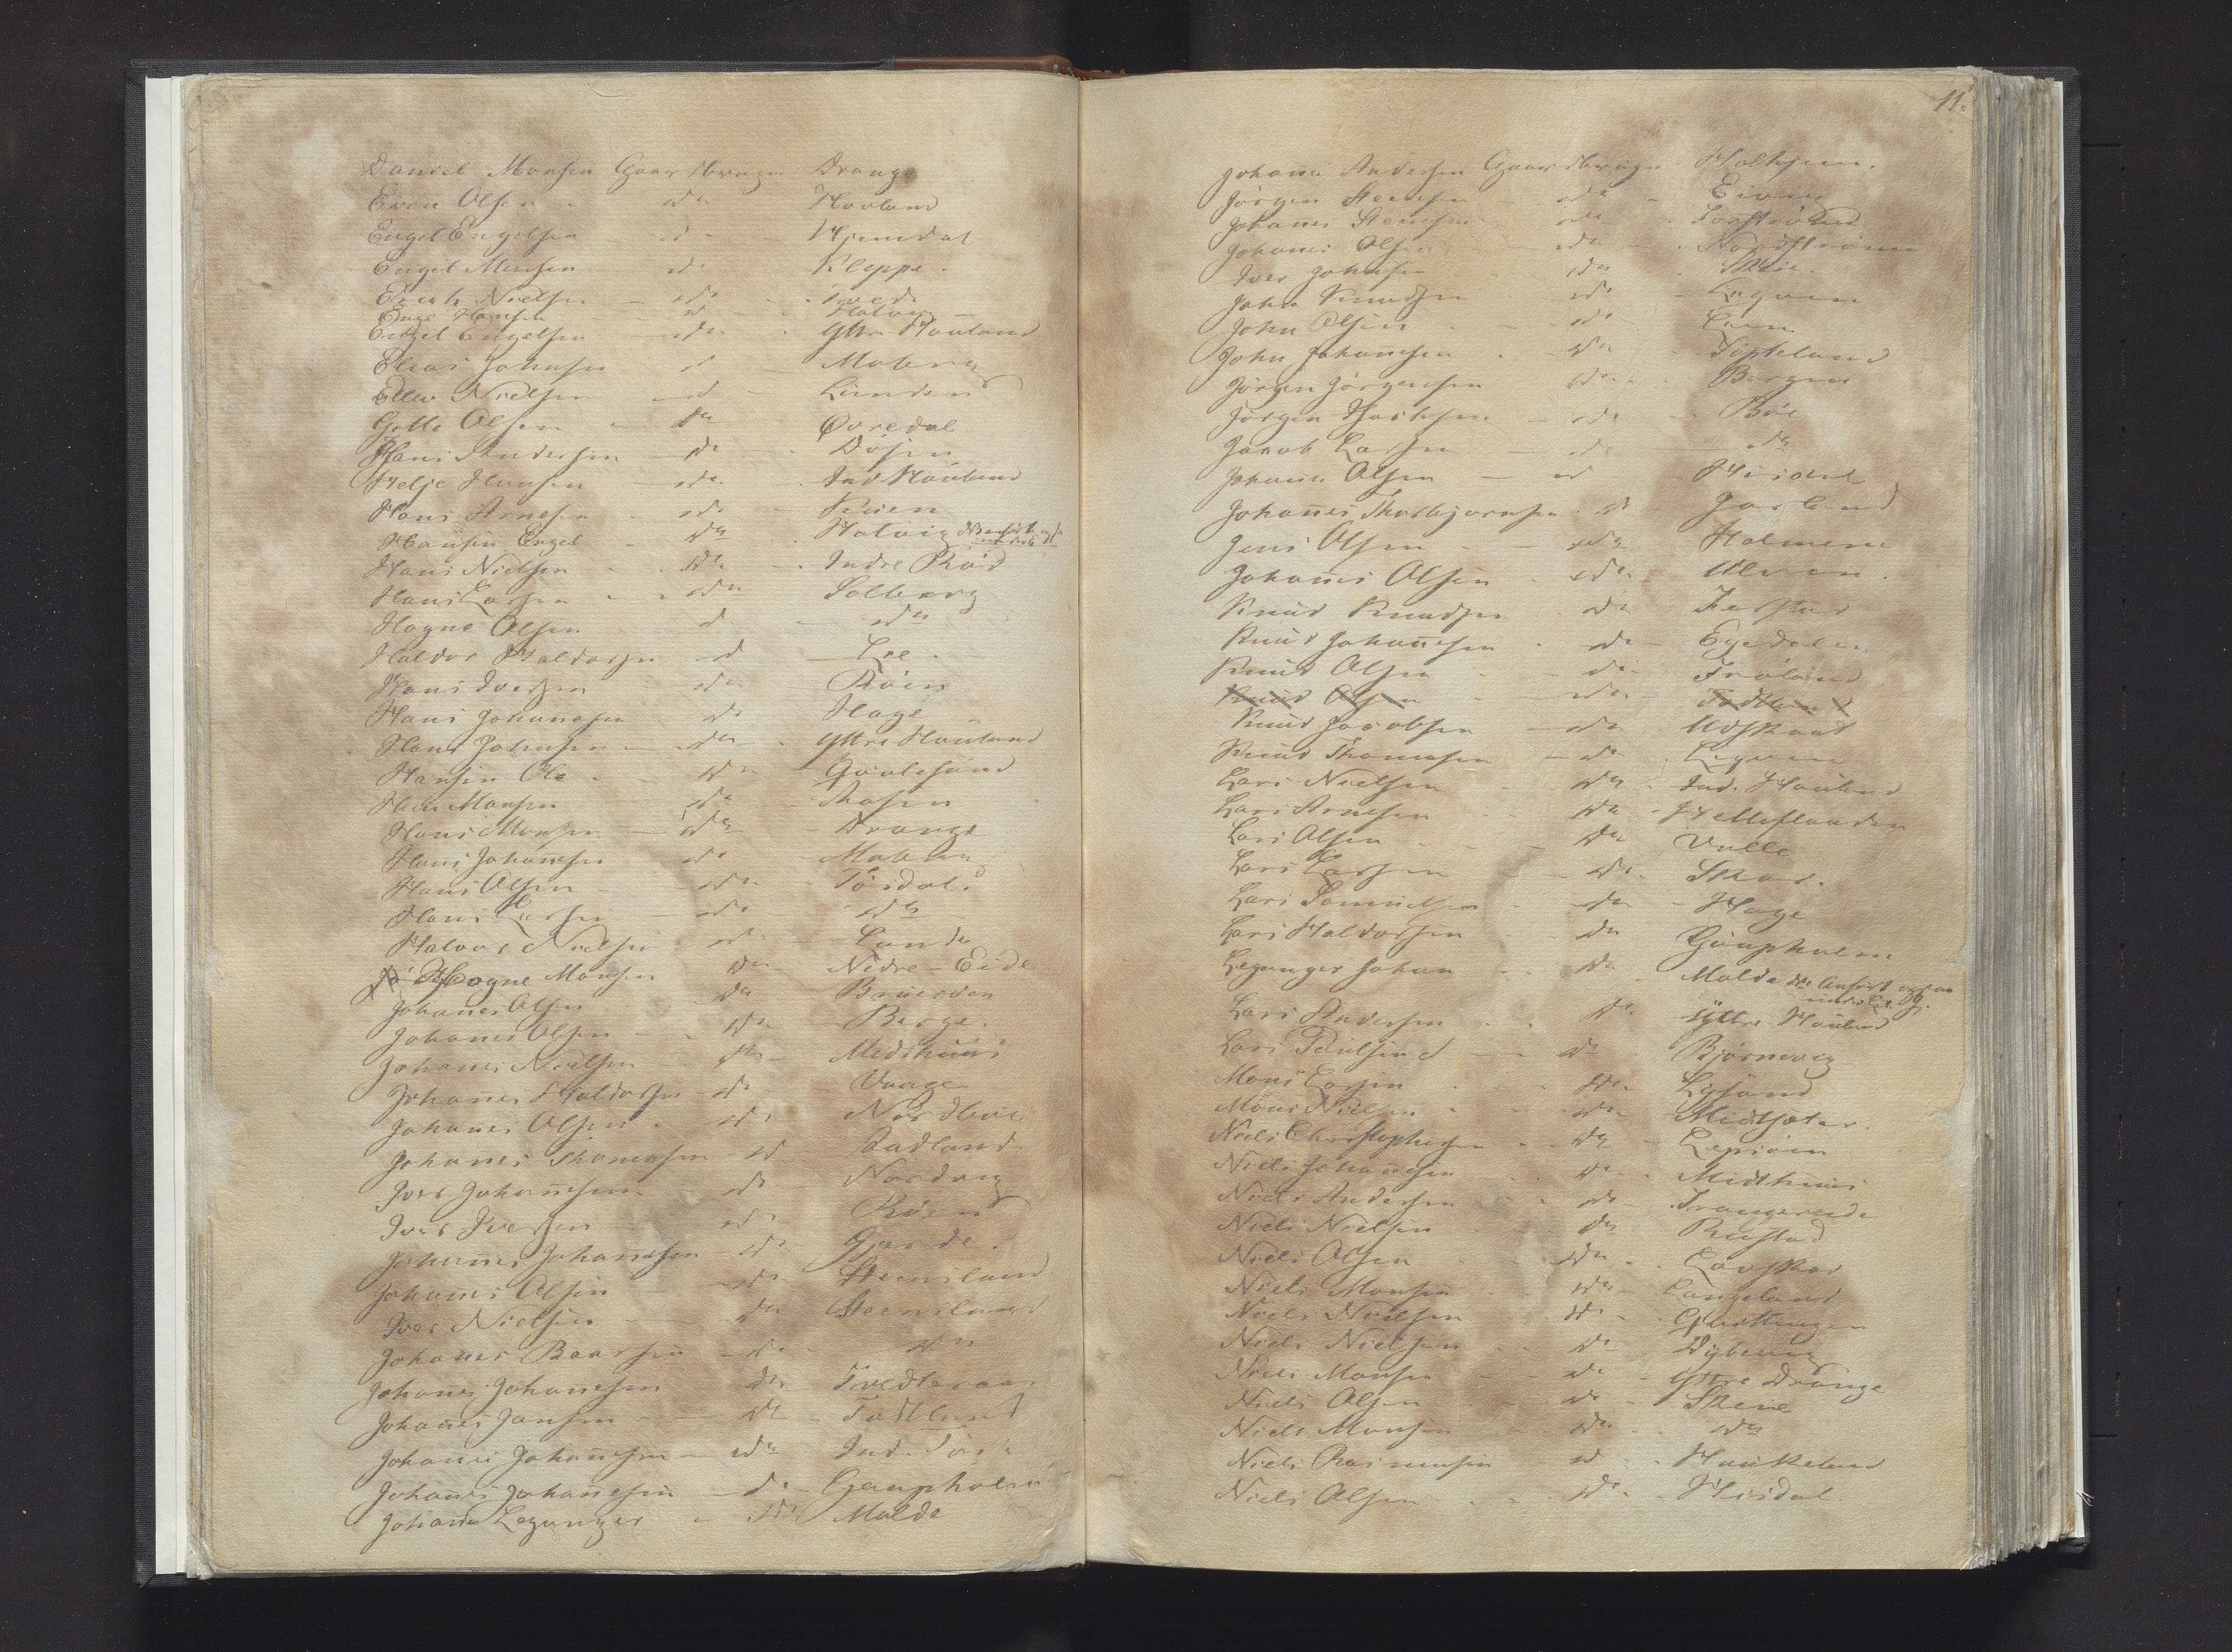 Daniel Monsen Gaardbruger Drange
Even Olsen do Hovland
Engel Engelsen do Hjemdal
Engel Monsen do Kleppe.
Erich Nielsen do Tvedt
Enge Hansen do Hatvig
Engel Engelsen do Yttre Hauland
Elias Johnsen do Moberg
Ellev Nielsen do Lunden
Gotte Olsen do Øvredal
Hans Andersen do Døsen
Helje Hansen do Ind Hauland
Hans Arnesen do Kuen
Hansen Engel do Hatvig
Hans Nielsen do Indre Rød
Hans Larsen do Solberg
Hogne Olsen do do
Haldor Haldorsen do Lee.
Hans Iversen do Røen
Hans Johannesen do Hage
Hans Johnsen do Yttre Hauland
Hansen Ole do
Hans Monsen do
Hans Monsen do Drange
Hans Johannesen do Moberg
Hans Olsen do Tøsdal.
Hans Larsen do do
Halvor Nielsen do Lunde
Hogne Monsen do Nedre-Eide
Johannes Olsen do Bruerden
Johannes Olsen do Berge.
Johannes Nielsen do Medhuus
Johannes Haldorsen do Vaage
Johannes Olsen do Nordbøe
Johannes Thomassen do Aadland.
Iver Johannesen do Nordvig
Iver Iversen do Røen
Johannes Johannesen do Gjerde.
Johannes Olsen do Steensland
Iver Nielsen do Steensland
Johannes Baarsen do do
Johannes Johannesen do Tvedteraas
Johannes Jansen do Tødtland
Johannes Johannesen do Ind.
Johannes Johannesen do Gaupholm
Johan Leganger do Malde
11.
Johannes Andersen Gaardbruger Halhjem.
Jørgen Steensen do
Johannes Steensen do
Johannes Olsen do Nordstrønen
Iver Johnsen do Skeie.
John Knudsen do Legven
John Olsen do Leen
John Johannesen do Søfteland
Jørgen Jørgensen do Borgen
Jørgen do Bøe
Jacob Larsen do do
Johannes Olsen do Hisdal
Johannes Thorbjørnsen do
Jens Olsen do Holmene
Johannes Olsen do Ulven.
Knud Knudsen do
Knud Johannesen do Egedalen
Knud Olsen do Frøland
Knud Olsen do Tødtland
Knud Jacobsen do Udskaat
Knud Thomassen do Legven
Lars Nielsen do Ind. Hauland
Lars Arnesen do Helleflaaden
Lars Olsen do Valle
Lars Larsen do Skar.
Lars Samuelsen do Hage
Lars Haldorsen do Gaupholm
Leganger Johan do Malde
Lars Andersen do Yttre Hauland
Lars Paulsen do Bjørnevig
Mons Larsen do Lysund
Mons Nielsen do Midtsæter.
Niels Christophersen do Lepsøen
Niels Johannesen do Midthuus
Niels Andersen do Trangereide
Niels Nielsen do Rustad
Niels Olsen do
Niels Monsen do Langeland
Niels Nielsen do Qvittingen
Niels Nielsen do Dybevig
Niels Monsen do Yttre Drange
Niels Olsen do Skeie
Niels Monsen do do
Niels Rasmussen do Haukeland
Niels Olsen do Hisdal.